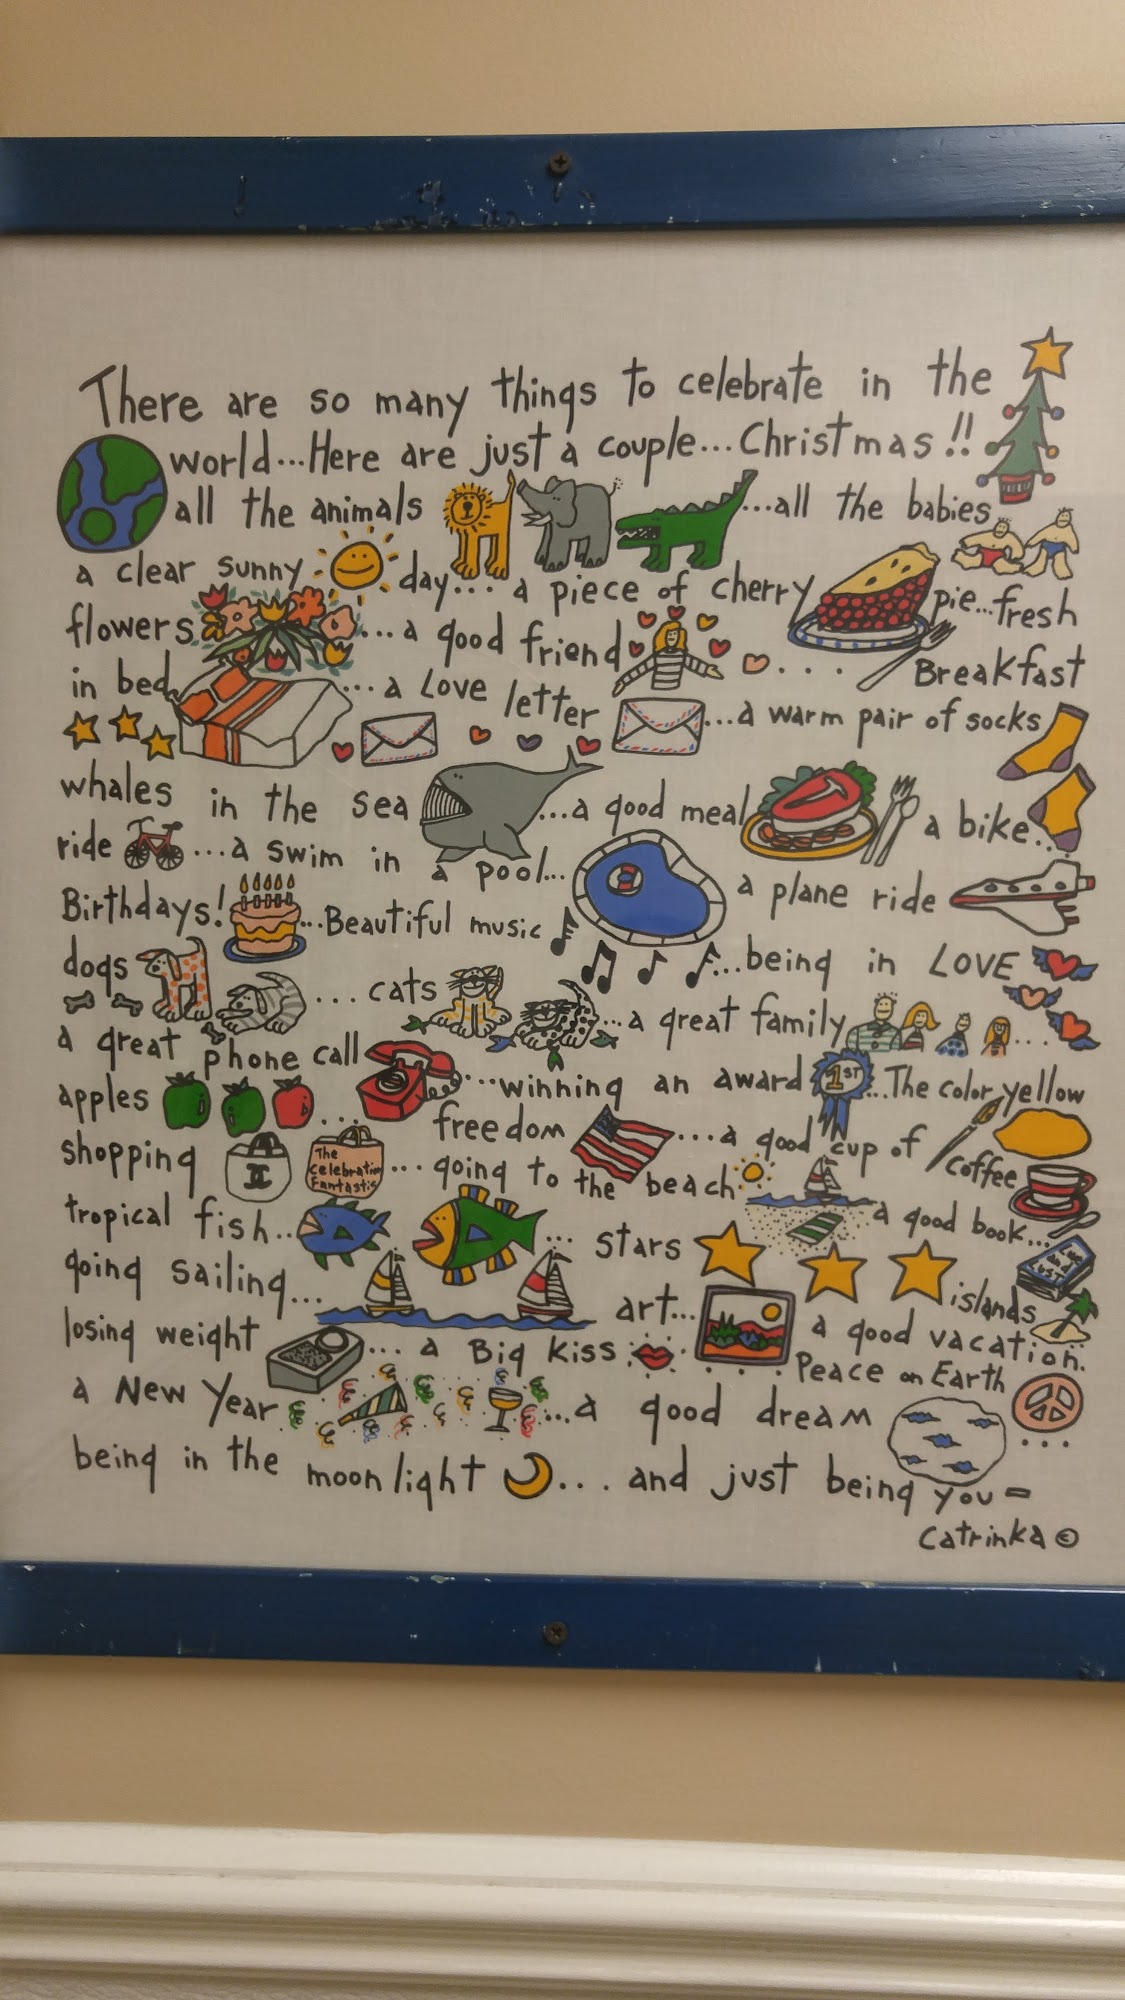 There are so many things to celebrate in the
world...Here are just a couple...Christmas!!
all the animals ...all the babies
a clear sunny day... a piece of cherry pie...fresh
flowers ...a good friend .... Breakfast
in bed ...a Love letter ...a warm pair of socks
whales in the sea ...a good meal a bike..
ride ...a swim in a pool... a plane ride
Birthdays! ...Beautiful music
dogs ... cats ...being in LOVE
a great phone call ...a great family ...
apples ... ...winning an award 1ST ...The color yellow
shopping The Celebration Fantastic ... freedom ...a good cup of coffee
tropical fish... going to the beach a good book...
going sailing... ... stars islands
losing weight ... a Big Kiss art... a good vacation.
a New Year ...a good dream Peace on Earth ...
being in the moonlight ... and just being you -
Catrinka ©